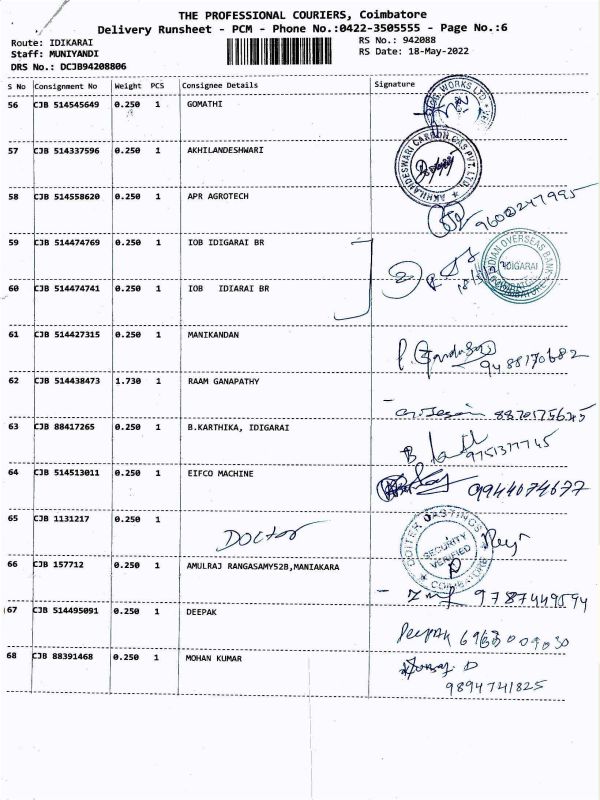 THE PROFESSIONAL COURIERS, Coimbatore
Delivery Runsheet - PCM - Phone No.:0422-3505555 - Page No.:6
Route: IDIKARAI RS No.: 942088
Staff: MUNIYANDI RS Date: 18-May-2022
DRS No.: DCJB94208806
S No Consignment No Weight PCS Consignee Details Signature
56 CJB 514545649 0.250 1 GOMATHI
WORKS LTD.
57 CJB 514337596 0.250 1 AKHILANDESHWARI
AKHILANDESWARI CARBON GAS PVT. LTD.
58 CJB 514558620 0.250 1 APR AGROTECH
9600247995
59 CJB 514474769 0.250 1 IOB IDIGARAI BR
INDIAN OVERSEAS BANK
IDIGARAI
COIMBATORE
60 CJB 514474741 0.250 1 IOB IDIARAI BR
61 CJB 514427315 0.250 1 MANIKANDAN
9488170682
62 CJB 514438473 1.730 1 RAAM GANAPATHY
63 CJB 88417265 0.250 1 B.KARTHIKA, IDIGARAI
64 CJB 514513011 0.250 1 EIFCO MACHINE
9944074677
65 CJB 1131217 0.250 1
DOCTOR
CASTINGS
SECURITY
VERIFIED
COIMBATORE
66 CJB 157712 0.250 1 AMULRAJ RANGASAMY52B,MANIAKARA
9787449594
67 CJB 514495091 0.250 1 DEEPAK
Deepak
68 CJB 88391468 0.250 1 MOHAN KUMAR
9894741825